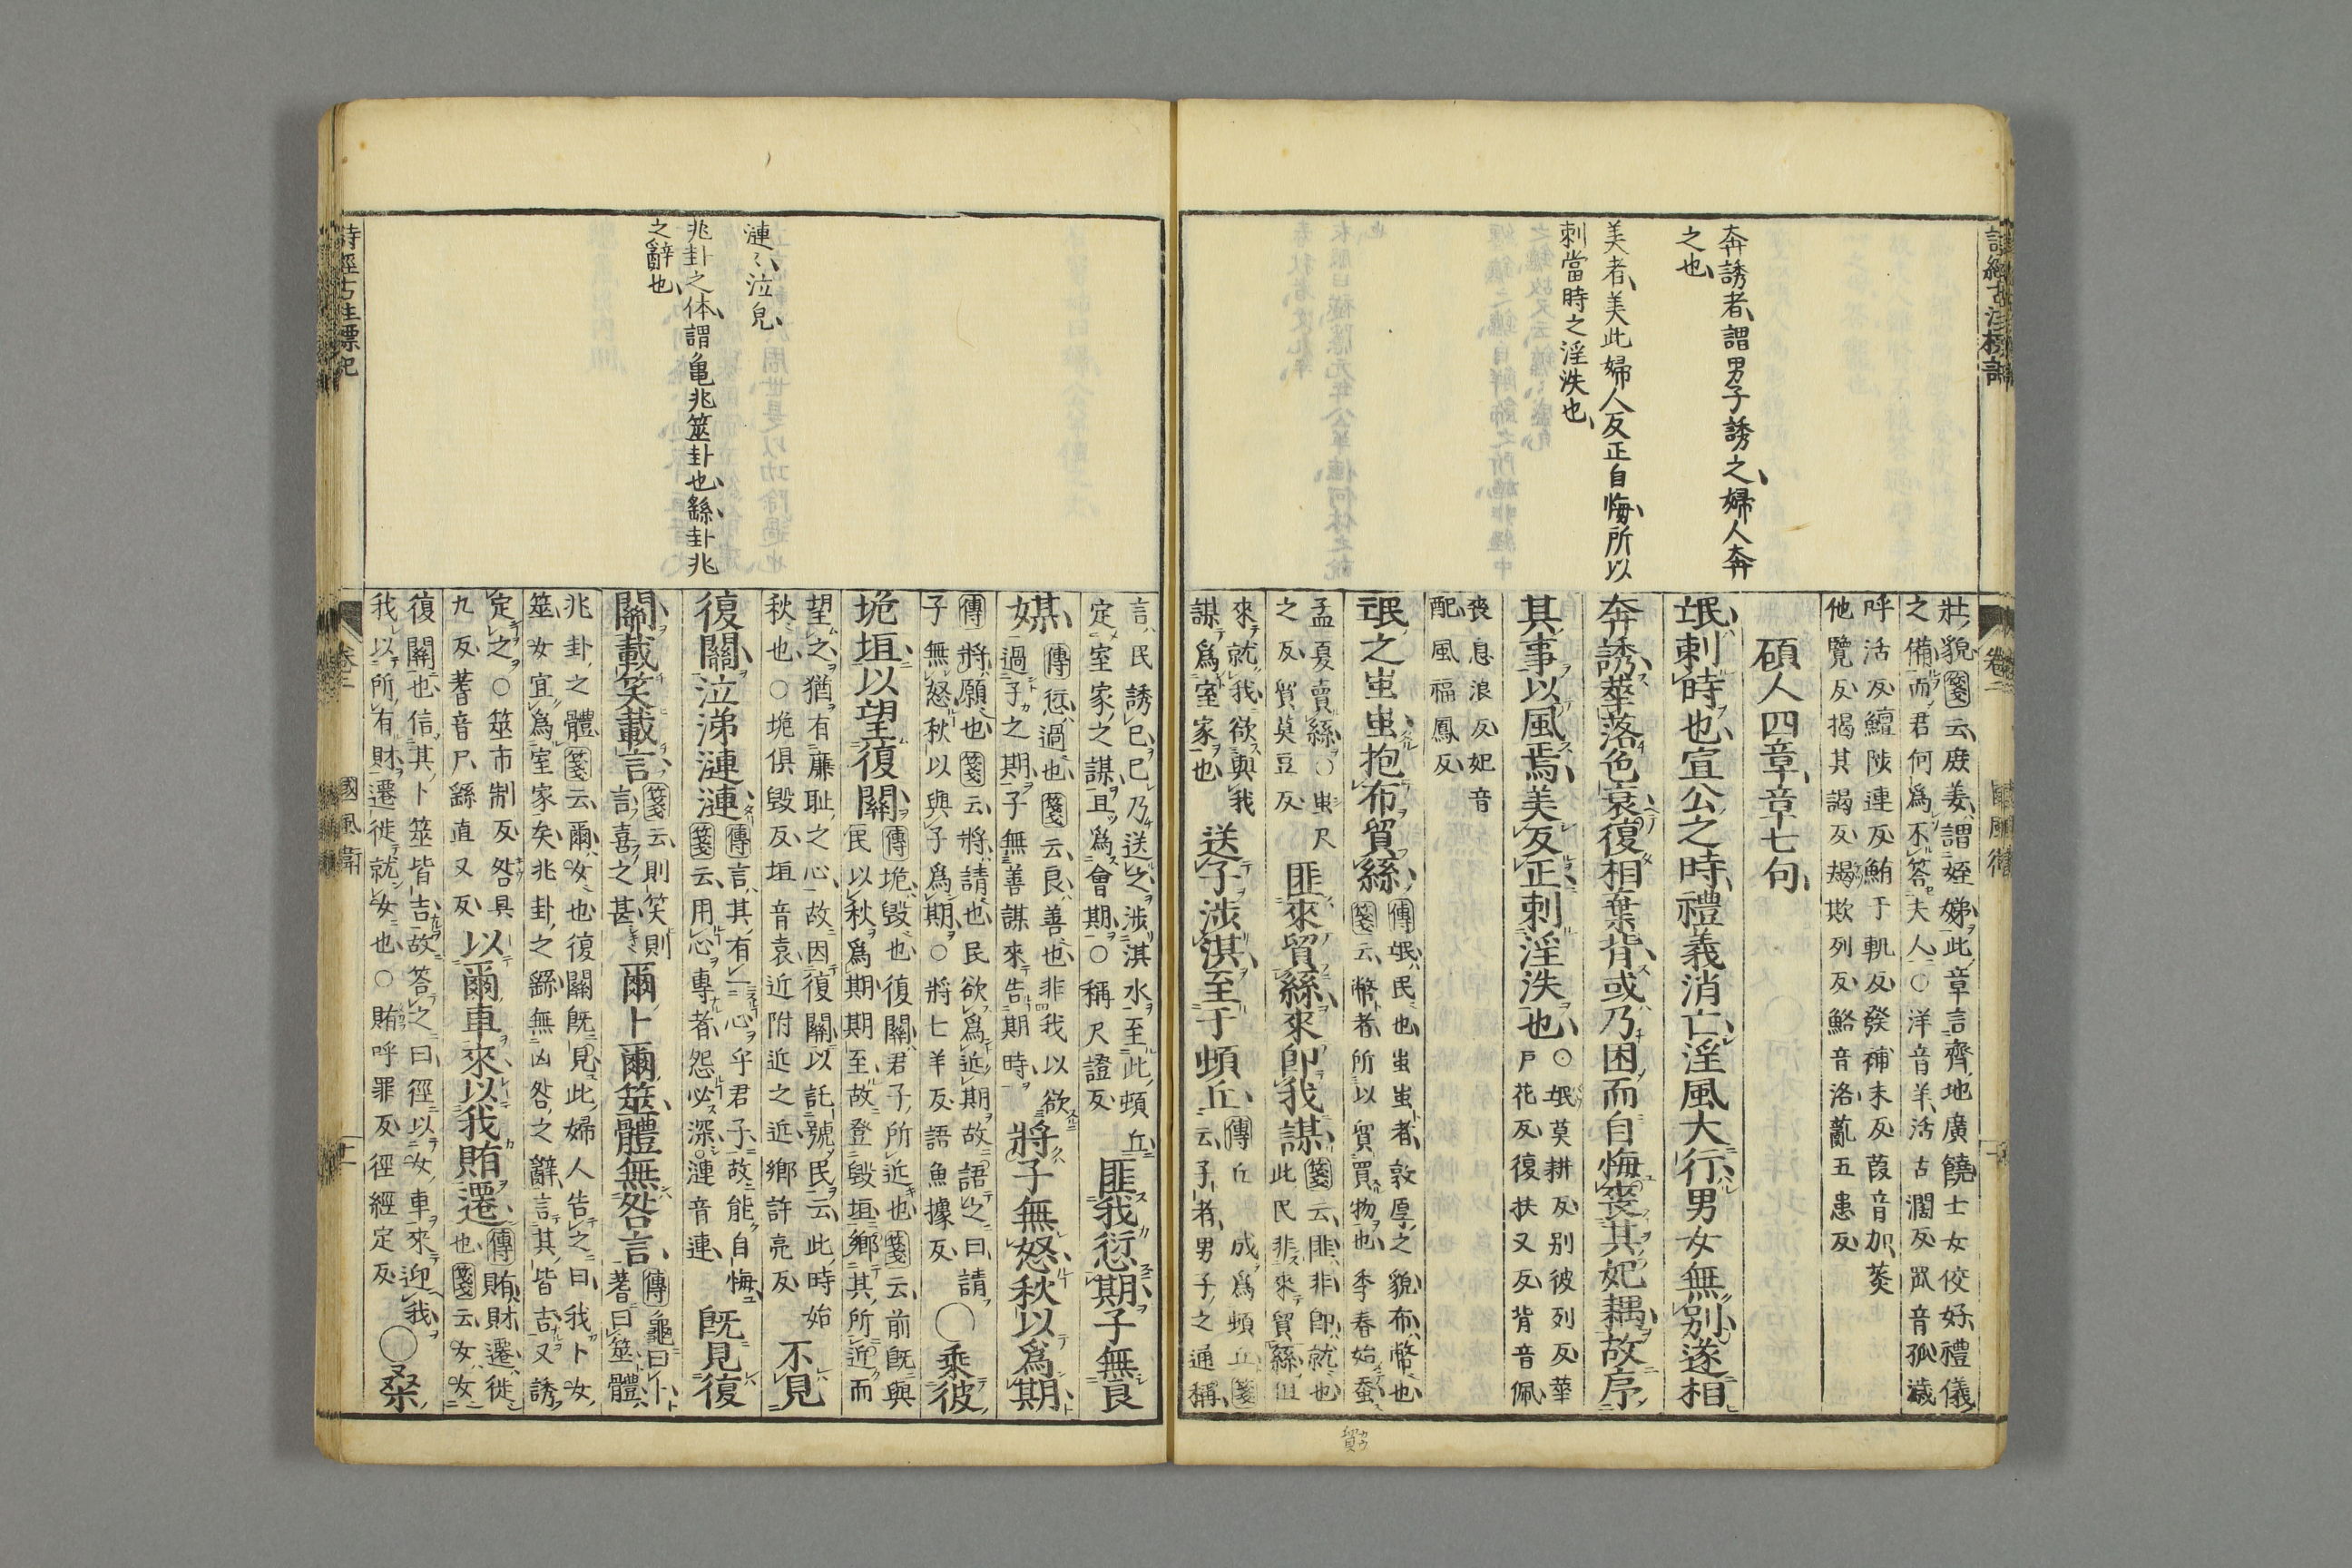 詩經古注標記
卷二
國風衛
奔誘者、謂男子誘之、婦人奔
之也、
美者、美此婦人反正自悔、所以
刺當時之淫泆也、
壯貌箋云庶姜謂姪娣此章言齊地廣饒士女佼好禮儀
之備而君何爲不答夫人○洋音羊活古濶反罛音孤濊
呼活反鱣陟連反鮪于軌反發補末反葭音加菼
他覽反揭其謁反朅欺列反鮥音洛薍五患反
碩人四章章七句
氓刺時也宣公之時禮義消亡淫風大行男女無別遂相
奔誘華落色衰復相棄背或乃困而自悔喪其妃耦故序
其事以風焉美反正刺淫泆也
○氓莫耕反別彼列反華
戸花反復扶又反背音佩
喪息浪反妃音
配風福鳳反
氓之蚩蚩抱布貿絲
傳氓民也蚩蚩者敦厚之貌布幣也
箋云幣者所以貿買物也季春始蠶
孟夏賣絲○蚩尺
之反貿莫豆反
匪來貿絲來卽我謀
箋云匪非卽就也
此民非來貿絲但
來就我欲與我
謀爲室家也
送子涉淇至于頓丘
傳丘一成爲頓丘箋
云子者男子之通稱
貿
言民誘己己乃送之涉淇水至此頓丘
定室家之謀且爲會期○稱尺證反
匪我愆期子無良
媒
傳愆過也箋云良善也非我以欲
過子之期子無善謀來告期時
將子無怒秋以爲期
傳將願也箋云將請也民欲爲近期故語之曰請
子無怒秋以與子爲期○將七羊反語魚據反
○乘彼
垝垣以望復關
傳垝毀也復關君子所近也箋云前既與
民以秋爲期期至故登毀垣鄉其所近而
望之猶有廉恥之心故因復關以託號民云此時始
秋也○垝俱毀反垣音袁近附近之近鄉許亮反
不見
復關泣涕漣漣
傳言其有一心乎君子故能自悔
箋云用心專者怨必深○漣音連
既見復
關載笑載言
箋云則笑則
言喜之甚
爾卜爾筮體無咎言
傳龜曰卜
蓍曰筮體
兆卦之體箋云爾女也復關既見此婦人告之曰我卜女
筮女宜爲室家矣兆卦之繇無凶咎之辭言其皆吉又誘
定之○筮市制反咎具
九反蓍音尸繇直又反
以爾車來以我賄遷
傳賄財遷徙
也箋云女女
復關也信其卜筮皆吉故答之曰徑以女車來迎我
我以所有財遷徙就女也○賄呼罪反徑經定反
○桑
漣〻泣皃
兆卦之体、謂亀兆筮卦也、繇卦兆
之辭也、
詩經古注標記
卷二
國風衛